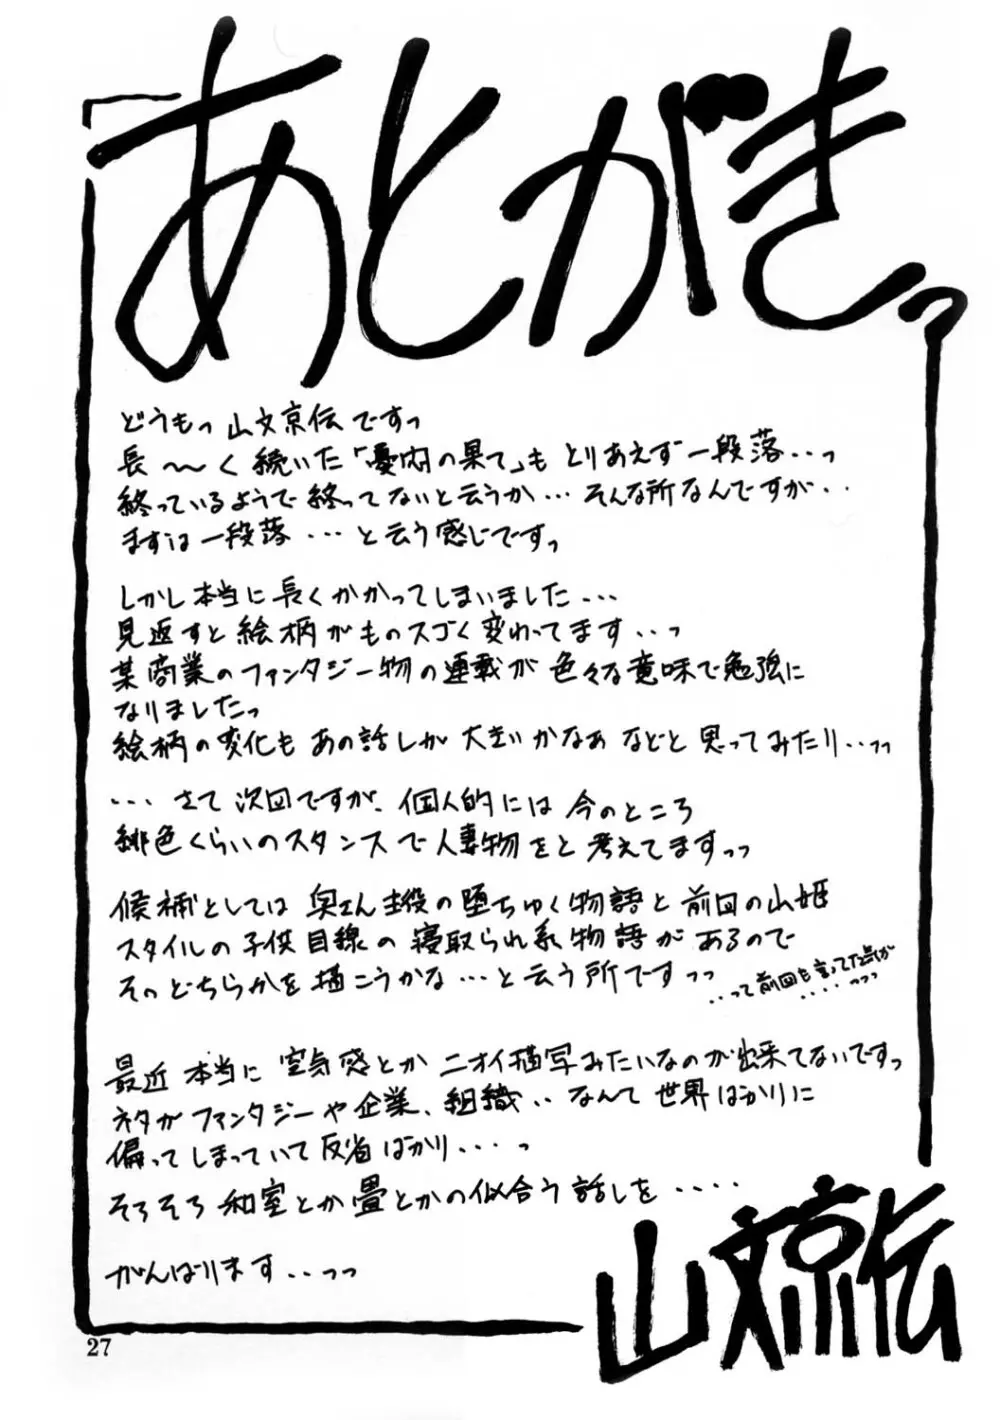 あとがきっ
どうもっ山文京伝ですっ
長〜く続いた「憂悶の果て」もとりあえず一段落‥っ
終っているようで終ってないと云うか…そんな所なんですが‥
まずは一段落…と云う感じですっ
しかし本当に長くかかってしまいました…
見返すと絵柄がものスゴく変わってます‥っ
某商業のファンタジー物の連載が色々な意味で勉強に
なりましたっ
絵柄の変化もあの話しが大きいかなあなどと思ってみたり‥っっ
…さて次回ですが、個人的には今のところ
緋色くらいのスタンスで人妻物をと考えてますっっ
候補としては奥さん主役の堕ちゆく物語と前回の山姫
スタイルの子供目線の寝取られ系物語があるので
そのどちらかを描こうかな…と云う所ですっっ
‥って前回も言ってた気が
‥‥っっっ
最近本当に空気感とかニオイ描写みたいなのが出来てないですっ
ネタがファンタジーや企業、組織‥なんて世界ばかりに
偏ってしまっていて反省ばかり‥‥っ
そろそろ和室とか畳とかの似合う話しを‥‥
がんばります‥っっ
山文京伝
27